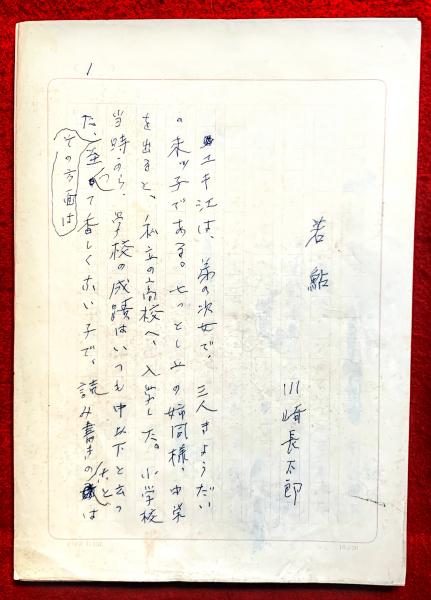 1
若鮎
川崎長太郎
ユキ江は、弟の次女で、三人きょうだい
の末ッ子である。七つとし上の姉同様、中学
を出ると、私立の高校へ、入学した。小学校
当時から、学校の成績はいつも中以下と云っ
た、至って香しくない子で、読み書きの は
その方面は